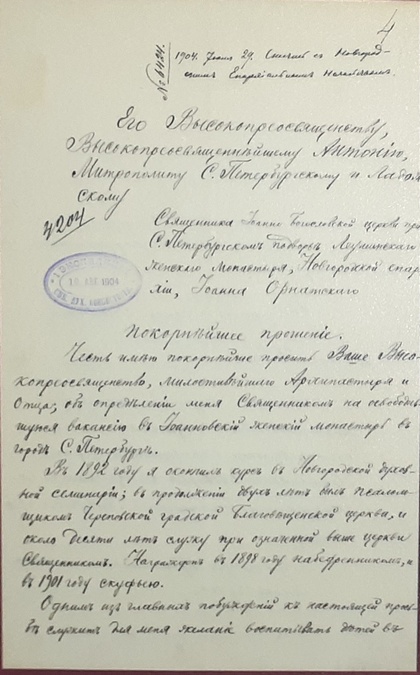 4
№ 6424.
1904. Июля 29. Снестись с Новгород-
скимъ Епархіальнымъ Начальствомъ.
Его Высокопреосвященству,
Высокопреосвященнѣйшему Антонію,
Митрополиту С. Петербургскому и Ладож-
скому
4207
Священника Іоанно Богословской церкви при
С. Петербургскомъ подворьѣ Леушинскаго
женскаго монастыря, Новгородской епар-
хіи, Іоанна Орнатскаго
1904
Покорнѣйшее прошеніе.
Честь имѣю покорнѣйше просить Ваше Высо-
копреосвященство, милостивѣйшаго Архипастыря и
Отца, объ опредѣленіи меня Священникомъ на освободив-
шуюся вакансію въ Іоанновскій женскій монастырь въ
городѣ С. Петербургѣ.
Въ 1892 году я окончилъ курсъ въ Новгородской духов-
ной семинаріи; въ продолженіи двухъ лѣтъ былъ псалом-
щикомъ Череповской градской Благовѣщенской церкви, и
около десяти лѣтъ служу при означенной выше церкви
Священникомъ. Награжденъ въ 1898 году набедренникомъ, и
въ 1901 году скуфьею.
Однимъ изъ главныхъ побужденій къ настоящей прось-
бѣ служитъ для меня желаніе воспитывать дѣтей въ